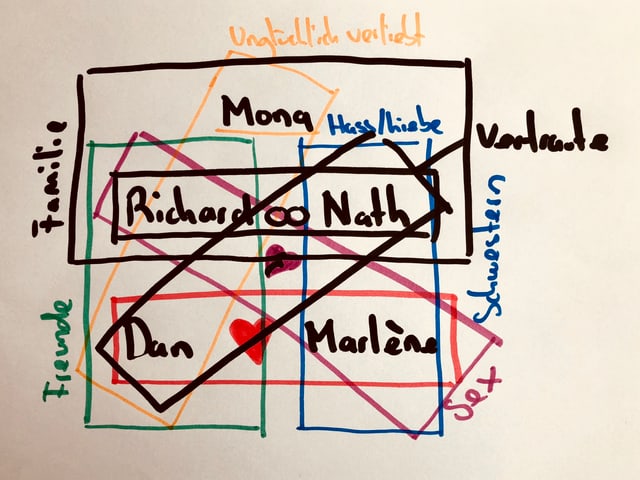 Unglücklich verliebt
Mona
Hass/Liebe
Vertraute
Familie
Richard ∞ Nath
Schwestern
Freunde
Dan
Marlène
Sex